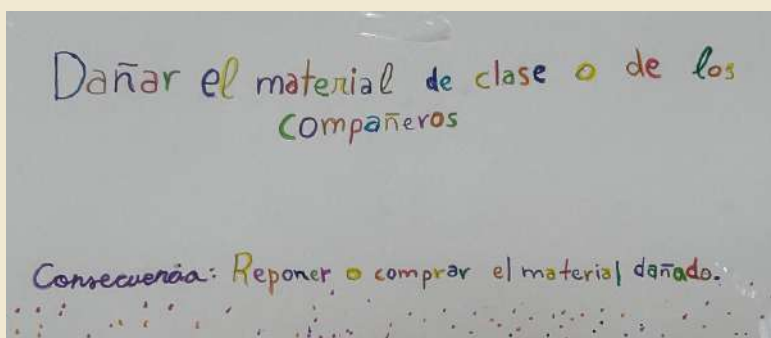 Dañar el material de clase o de los
compañeros
Consecuencia: Reponer o comprar el material dañado.